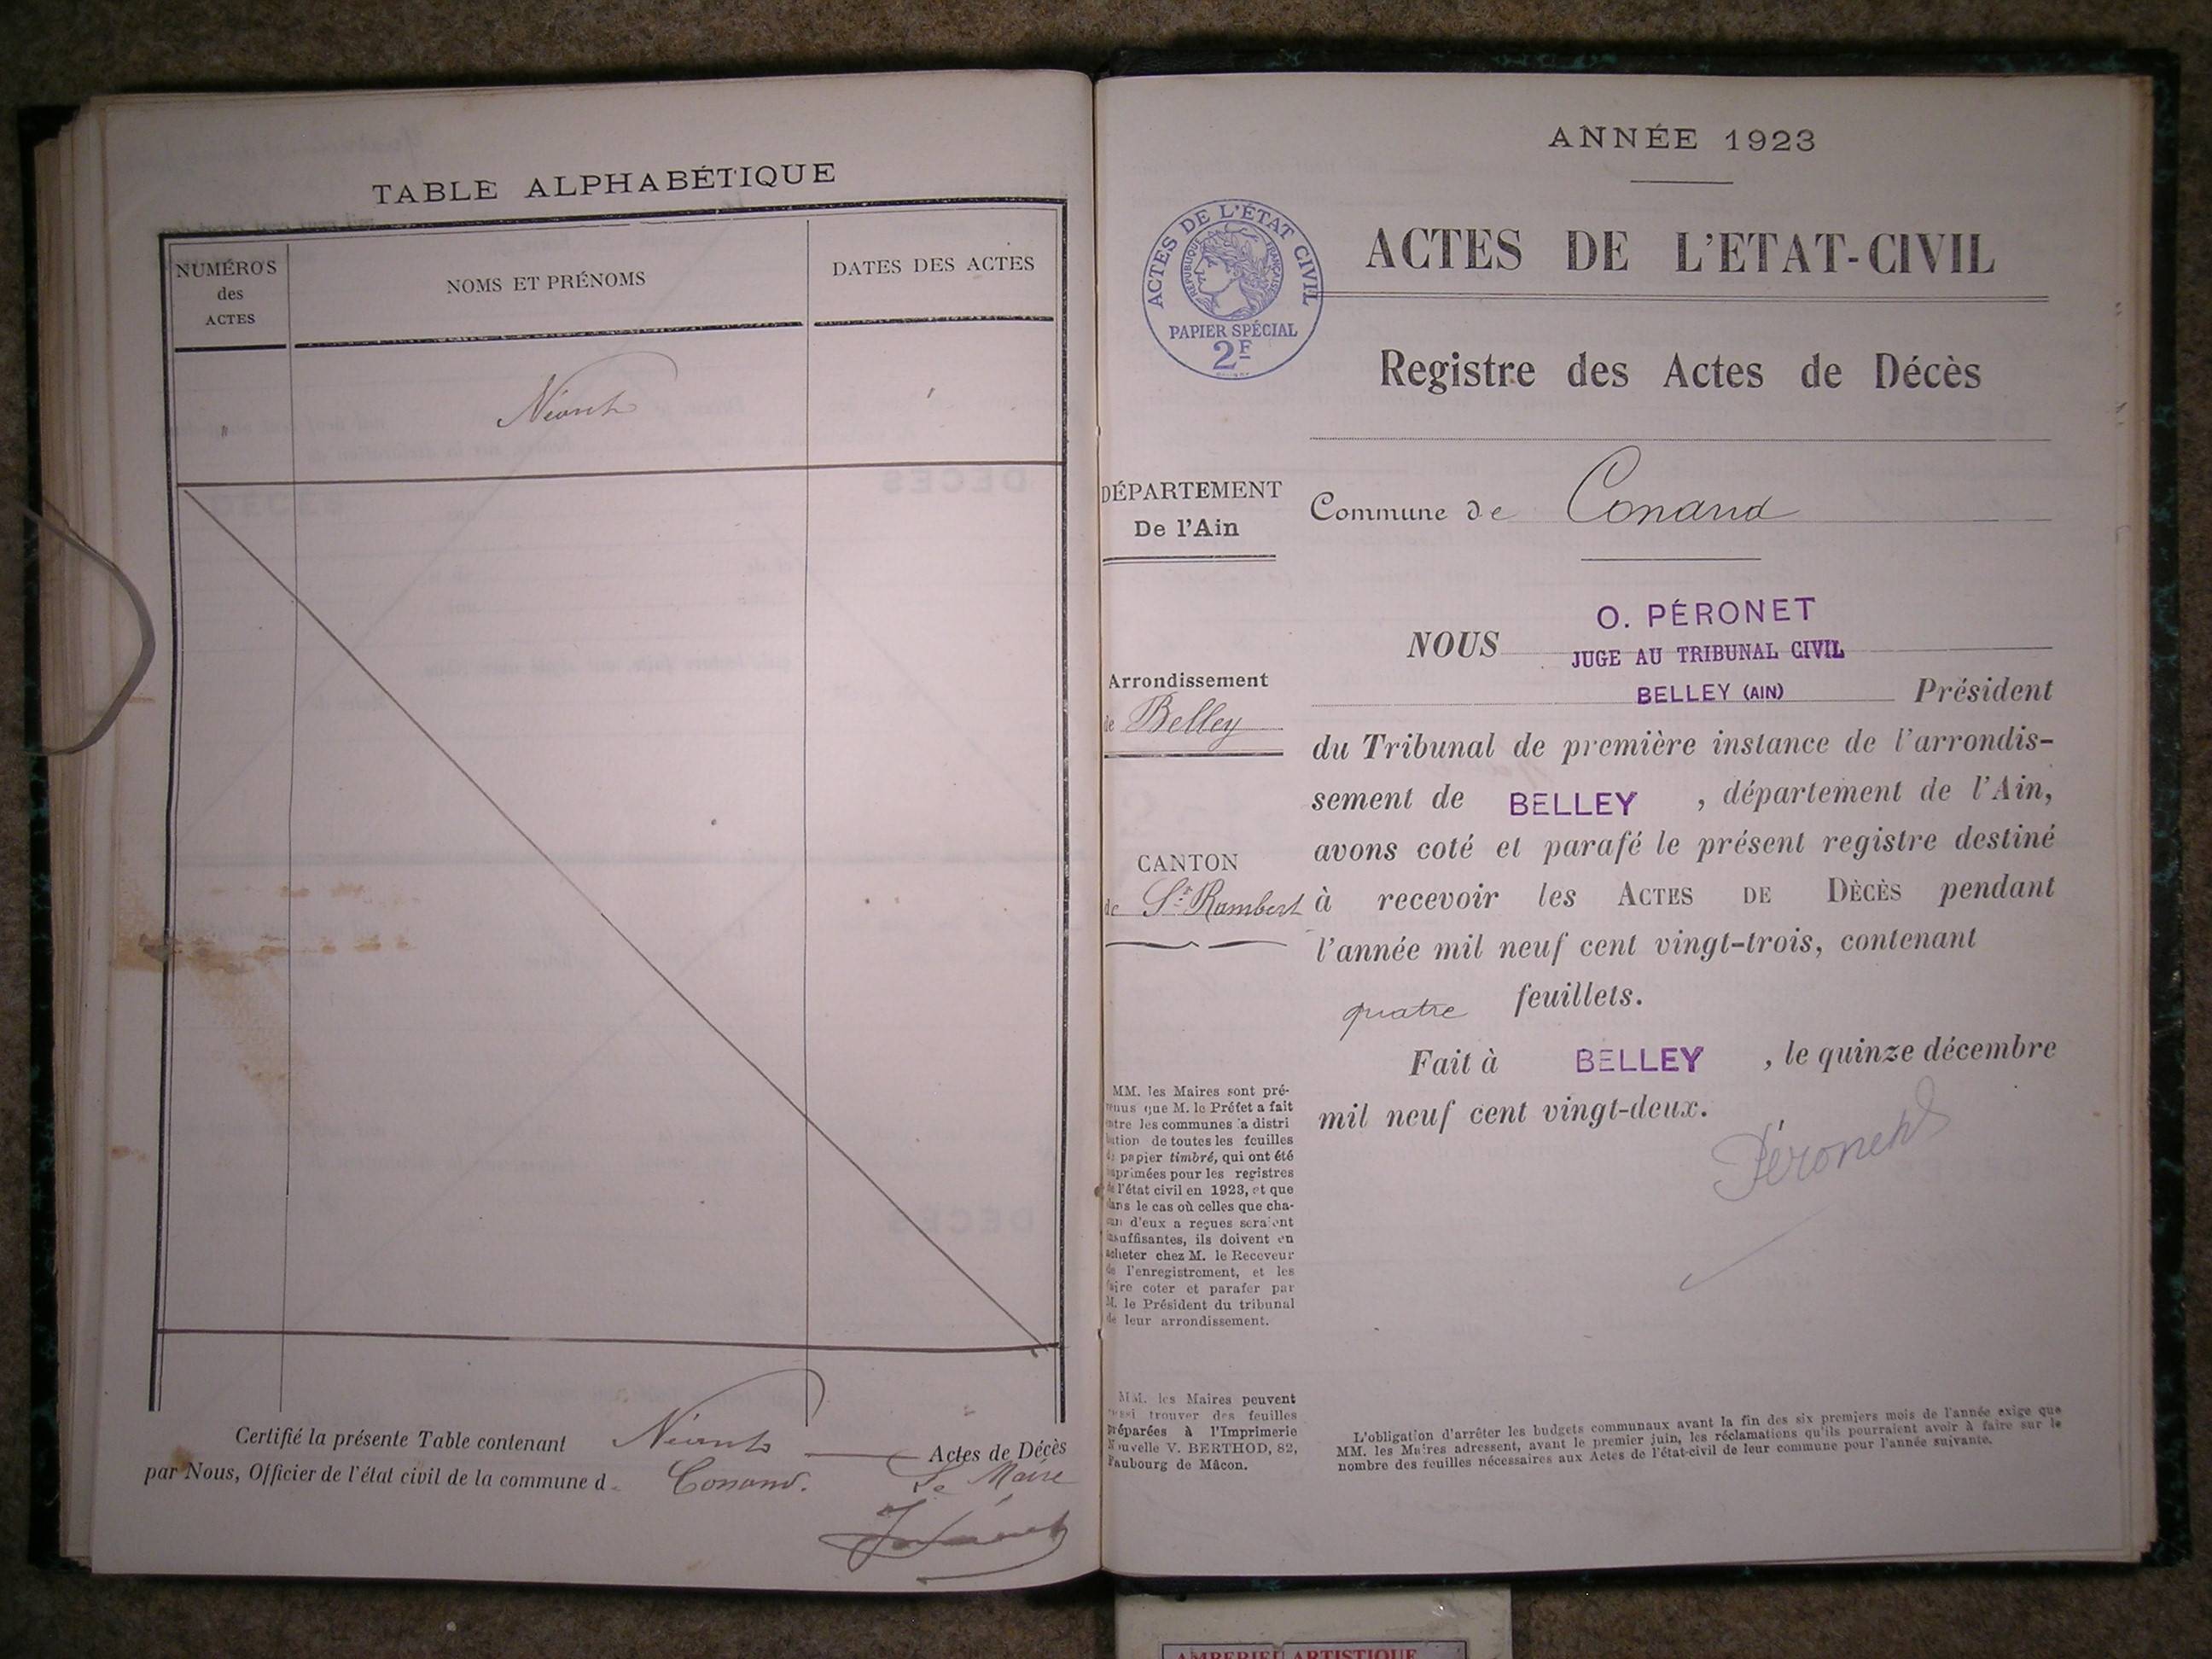 TABLE ALPHABÉTIQUE
NUMÉROS
des
ACTES
NOMS ET PRÉNOMS
DATES DES ACTES
" Néant
Certifié la présente Table contenant Néant Actes de Décès
par Nous, Officier de l'état civil de la commune d Conand.
Le Maire
ANNÉE 1923
ACTES DE L'ETAT-CIVIL
ACTES DE L'ÉTAT CIVIL
RÉPUBLIQUE FRANÇAISE
PAPIER SPÉCIAL
2F
Registre des Actes de Décès
DÉPARTEMENT
De l'Ain
Commune de Conand
Arrondissement
de Belley
CANTON
de St Rambert
NOUS O. PÉRONET
JUGE AU TRIBUNAL CIVIL
BELLEY (AIN) Président
du Tribunal de première instance de l'arrondis-
sement de BELLEY , département de l'Ain,
avons coté et parafé le présent registre destiné
à recevoir les ACTES DE DÈCÈS pendant
l'année mil neuf cent vingt-trois, contenant
quatre feuillets.
Fait à BELLEY , le quinze décembre
mil neuf cent vingt-deux.
Péronet
MM. les Maires sont pré-
venus que M. le Préfet a fait
entre les communes a distri
bution de toutes les feuilles
de papier timbré, qui ont été
imprimées pour les registres
de l'état civil en 1923, et que
dans le cas où celles que cha-
cun d'eux a reçues seraient
insuffisantes, ils doivent en
acheter chez M. le Receveur
de l'enregistrement, et les
faire coter et parafer par
M. le Président du tribunal
de leur arrondissement.
MM. les Maires peuvent
aussi trouver des feuilles
préparées à l'Imprimerie
Nouvelle V. BERTHOD, 82,
Faubourg de Mâcon.
L'obligation d'arrêter les budgets communaux avant la fin des six premiers mois de l'année exige que
MM. les Maires adressent, avant le premier juin, les réclamations qu'ils pourraient avoir à faire sur le
nombre des feuilles nécessaires aux Actes de l'état-civil de leur commune pour l'année suivante.
AMBERIEU ARTISTIQUE